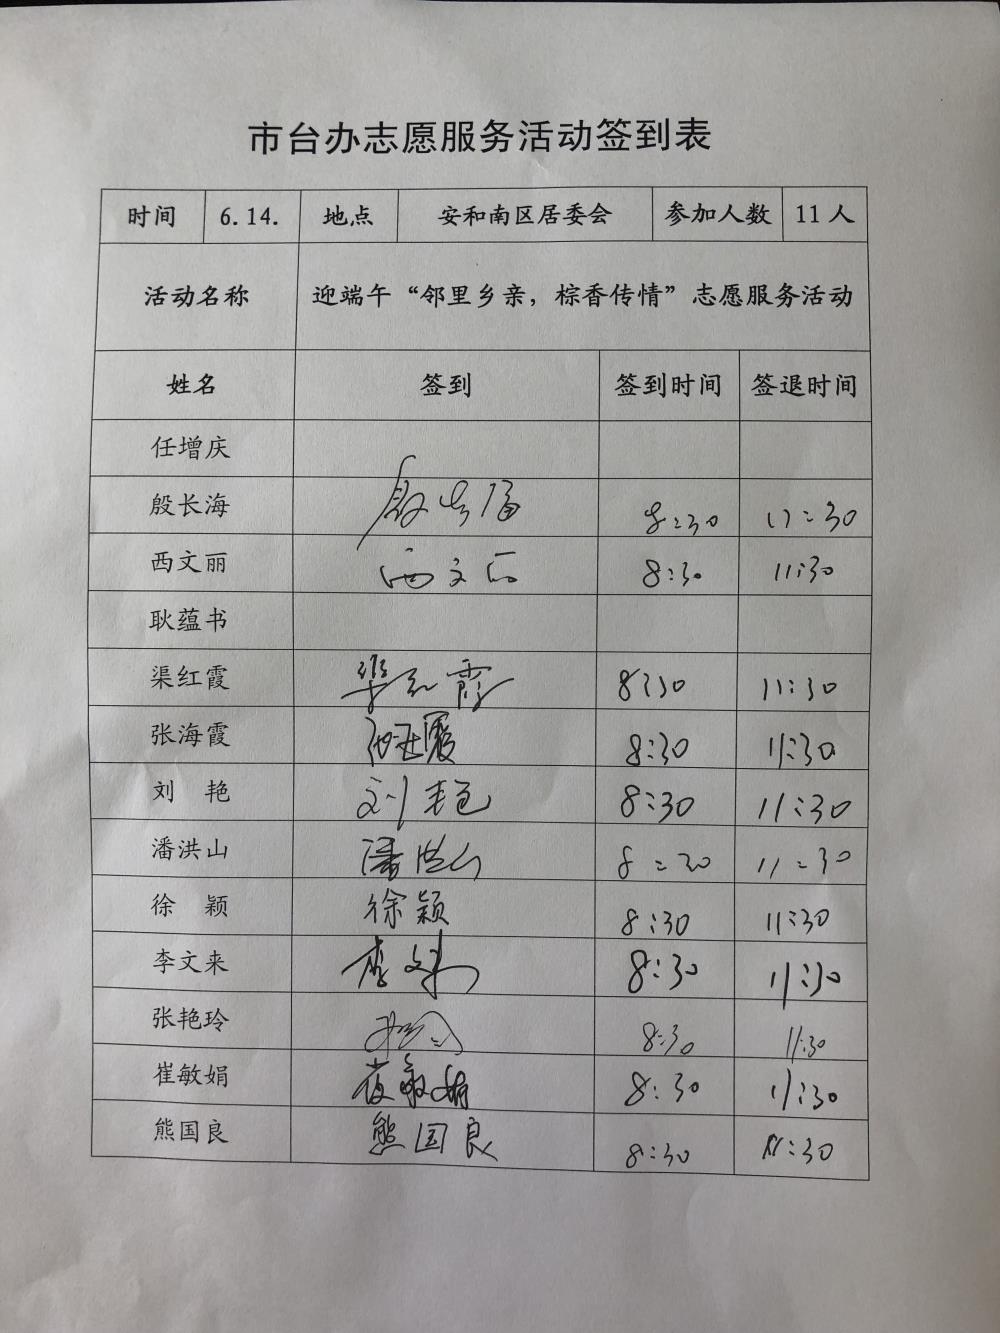 市台办志愿服务活动签到表
时间 6.14. 地点 安和南区居委会 参加人数 11人
活动名称 迎端午“邻里乡亲，棕香传情”志愿服务活动
姓名 签到 签到时间 签退时间
任增庆
殷长海 殷长海 8:30 11:30
西文丽 西文丽 8:30 11:30
耿蕴书
渠红霞 渠红霞 8:30 11:30
张海霞 张海霞 8:30 11:30
刘 艳 刘艳 8:30 11:30
潘洪山 潘洪山 8:30 11:30
徐 颖 徐颖 8:30 11:30
李文来 李文来 8:30 11:30
张艳玲 8:30 11:30
崔敏娟 崔敏娟 8:30 11:30
熊国良 熊国良 8:30 11:30